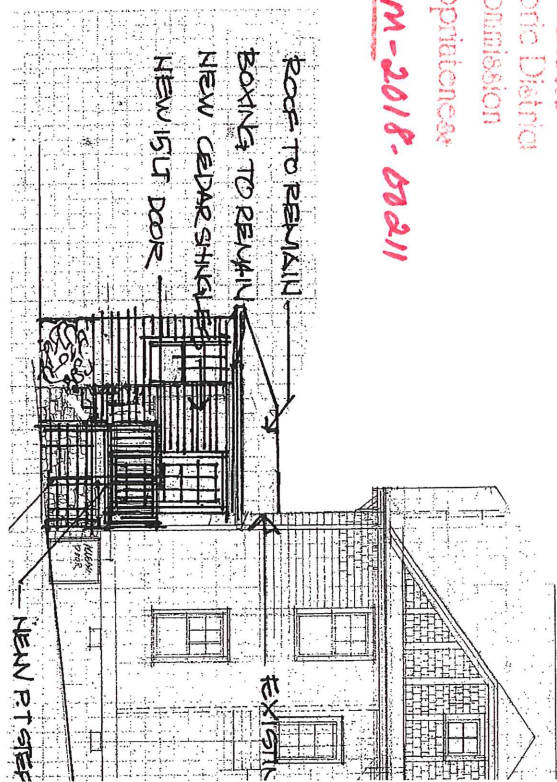 oric District
ommission
opriateness
M-2018-00211
ROOF TO REMAIN
BOXING TO REMAIN
NEW CEDAR SHINGLE
NEW 15LT DOOR
EXISTIN
NEW P.T STEP